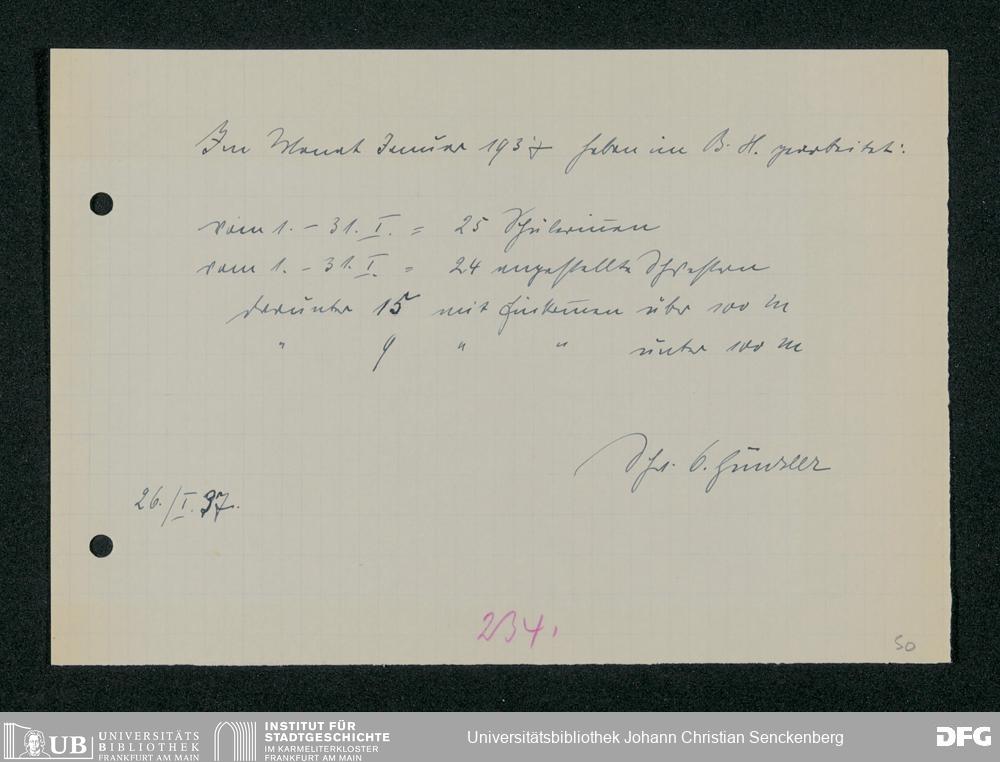 Im Monat Januar 1937 haben im B. H. gearbeitet:
vom 1. - 31. I. = 25 Schülerinnen
vom 1. - 31. I. = 24 angestellte Schwestern
darunter 15 mit Einkommen über 100 M
" 9 " " unter 100 M
Schw. 
26./I. 37.
234.
50
UB UNIVERSITÄTS
BIBLIOTHEK
FRANKFURT AM MAIN
INSTITUT FÜR
STADTGESCHICHTE
IM KARMELITERKLOSTER
FRANKFURT AM MAIN
Universitätsbibliothek Johann Christian Senckenberg
DFG